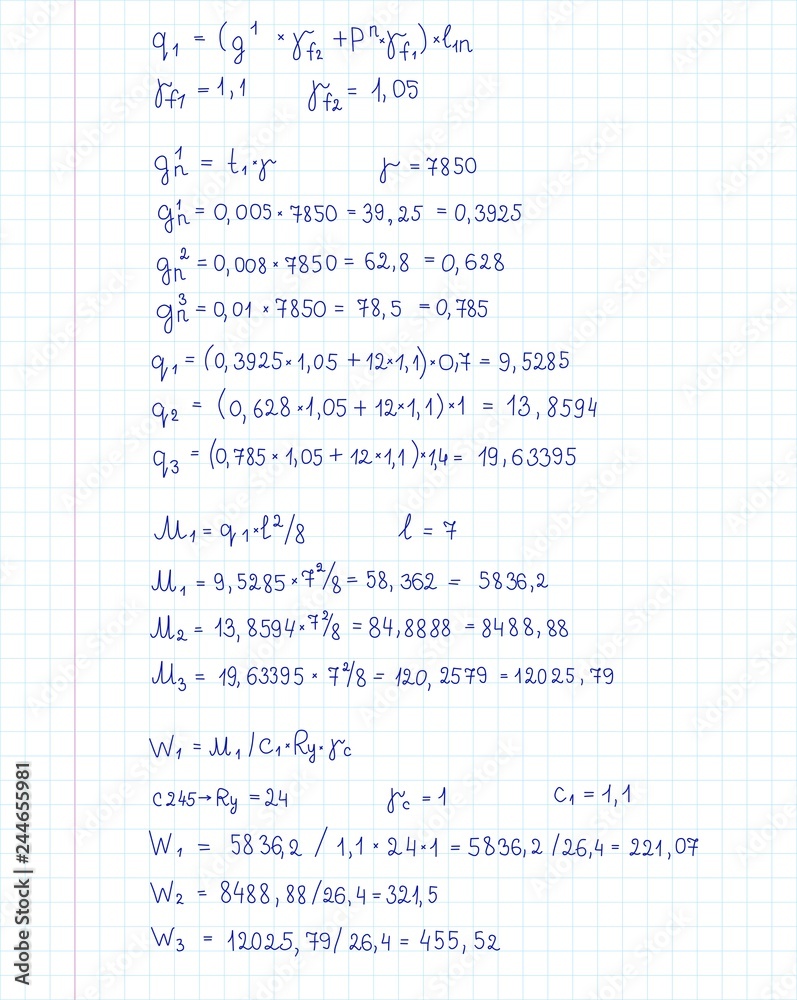 q₁ = (g¹ × γf₂ + Pⁿ × γf₁) × l₁n
γf₁ = 1,1 γf₂ = 1,05
gn¹ = t₁ × γ γ = 7850
gn¹ = 0,005 × 7850 = 39,25 = 0,3925
gn² = 0,008 × 7850 = 62,8 = 0,628
gn³ = 0,01 × 7850 = 78,5 = 0,785
q₁ = (0,3925 × 1,05 + 12 × 1,1) × 0,7 = 9,5285
q₂ = (0,628 × 1,05 + 12 × 1,1) × 1 = 13,8594
q₃ = (0,785 × 1,05 + 12 × 1,1) × 1,4 = 19,63395
M₁ = q₁ × l²/8 l = 7
M₁ = 9,5285 × 7²/8 = 58,362 = 5836,2
M₂ = 13,8594 × 7²/8 = 84,8888 = 8488,88
M₃ = 19,63395 × 7²/8 = 120,2579 = 12025,79
W₁ = M₁ / C₁ × Ry × γc
c245 → Ry = 24 γc = 1 C₁ = 1,1
W₁ = 5836,2 / 1,1 × 24 × 1 = 5836,2 / 26,4 = 221,07
W₂ = 8488,88 / 26,4 = 321,5
W₃ = 12025,79 / 26,4 = 455,52
Adobe Stock | #244655981